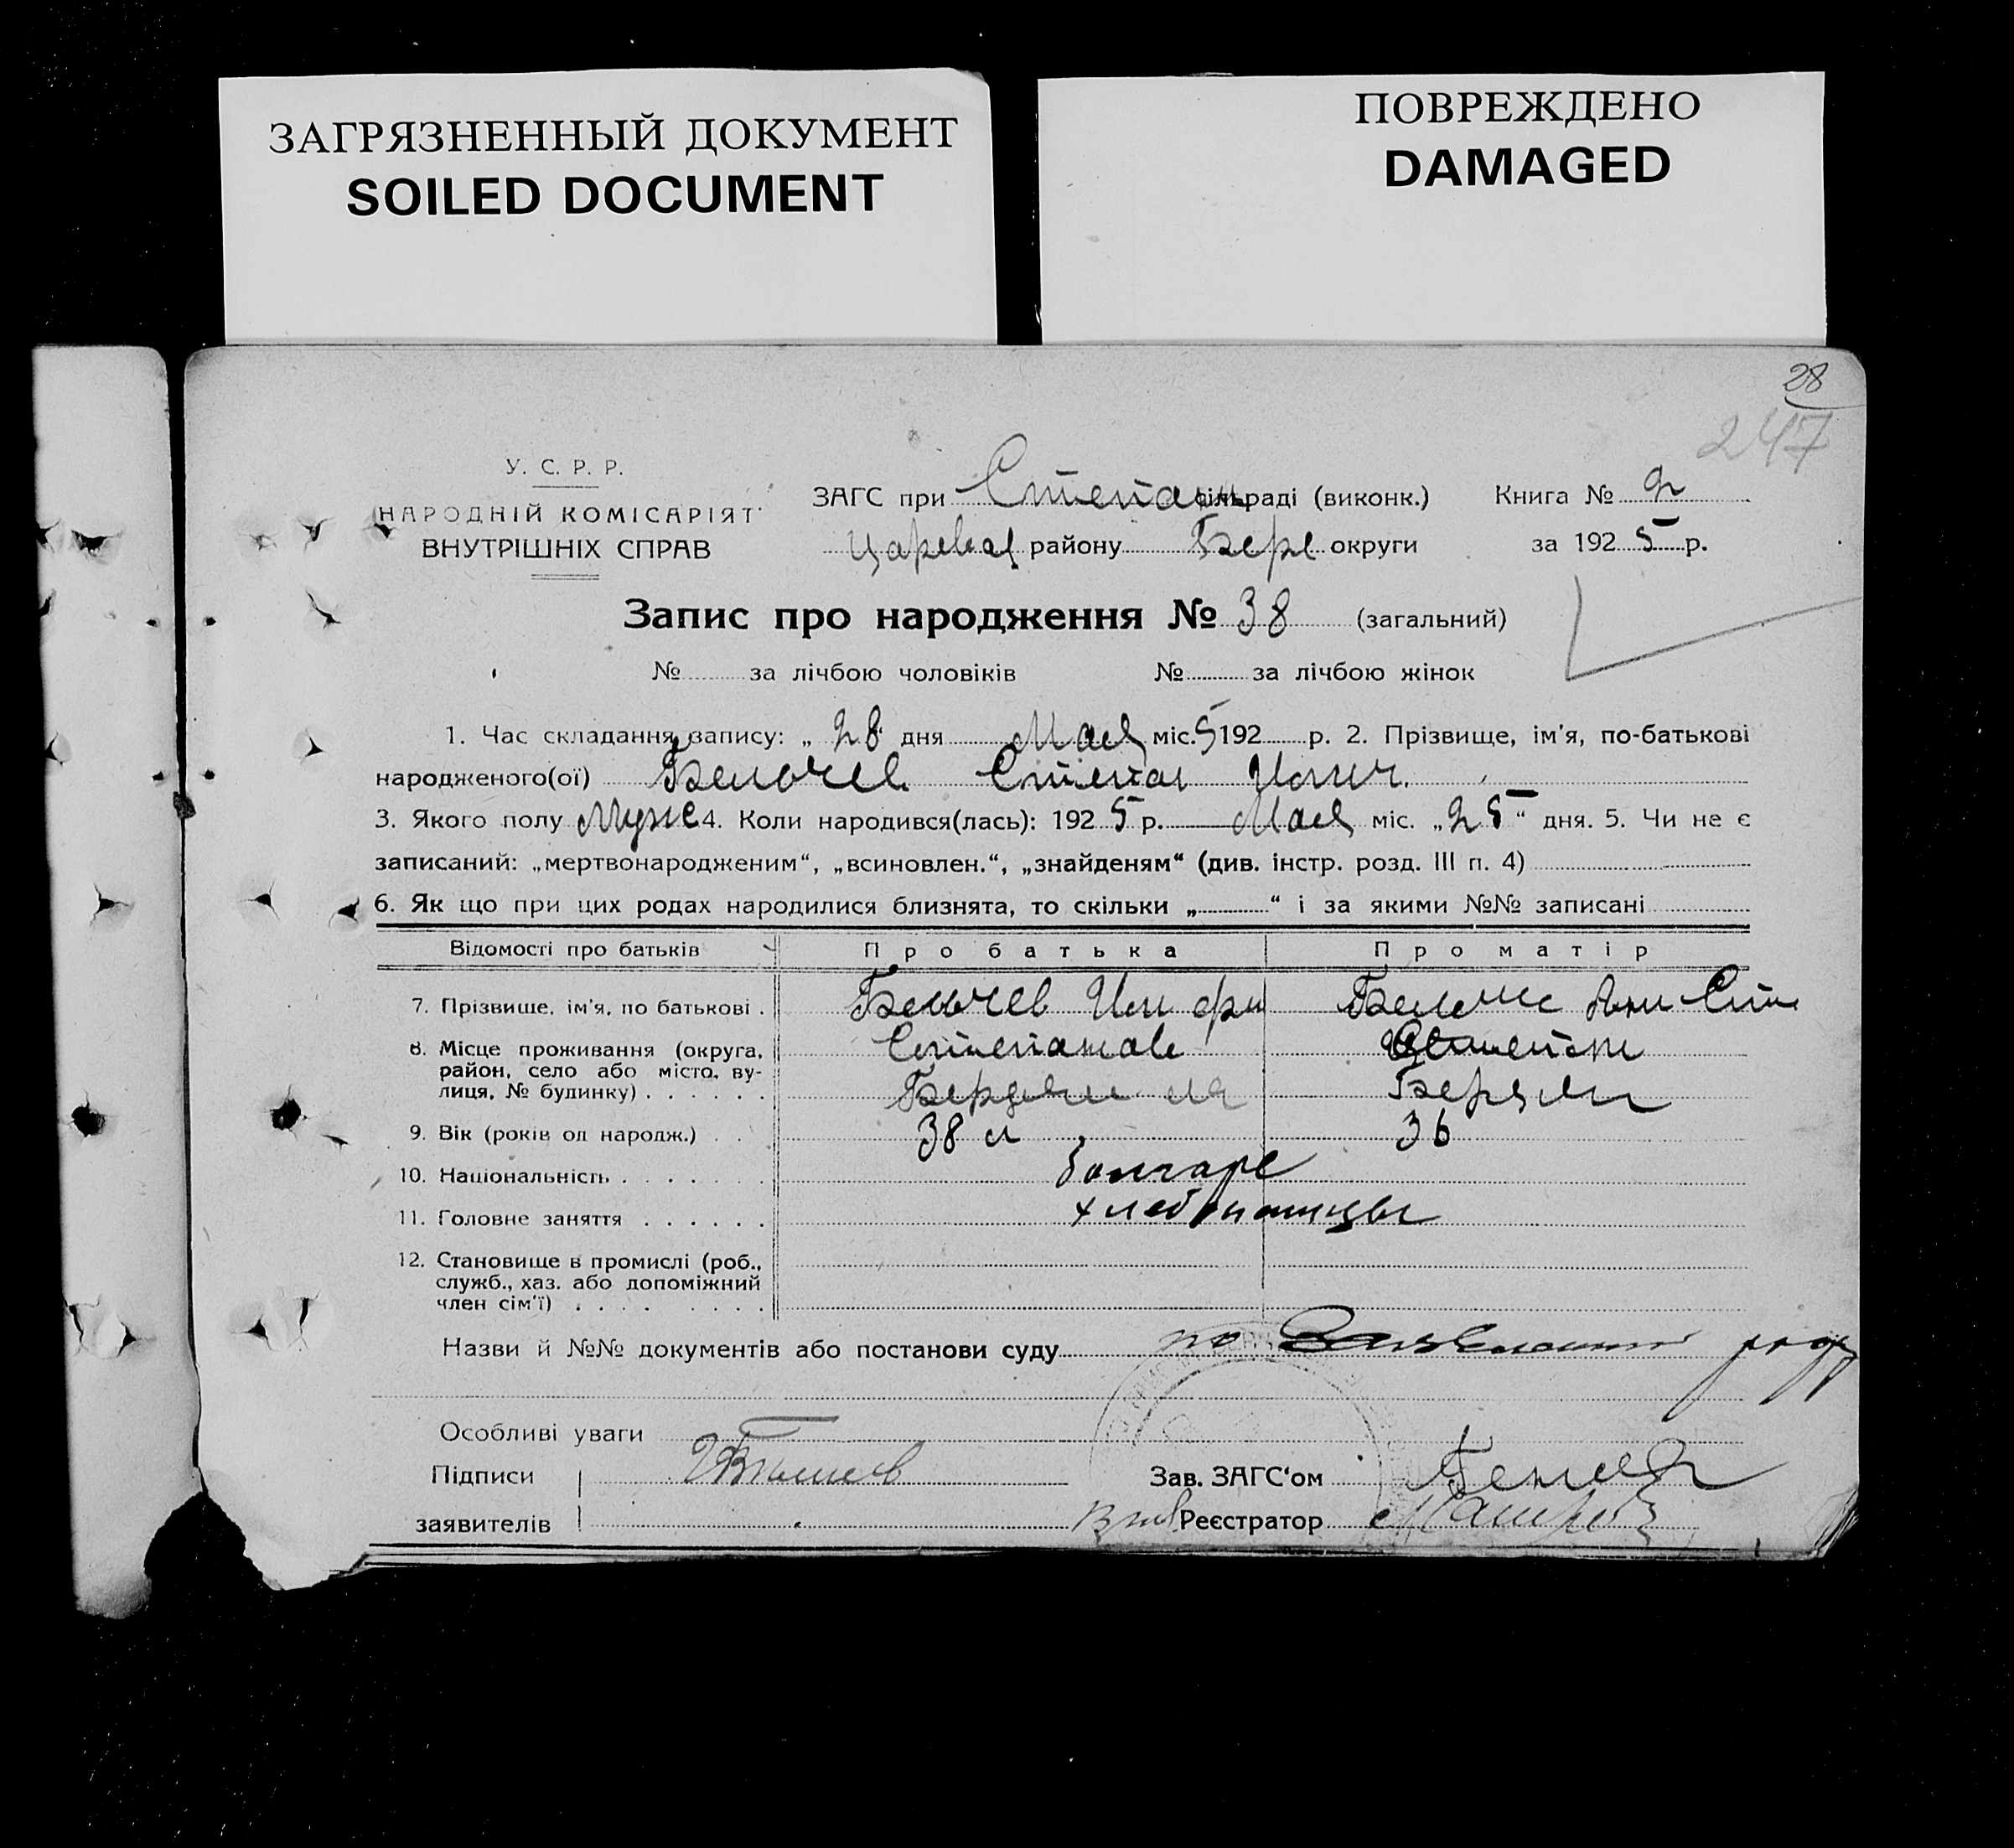 ЗАГРЯЗНЕННЫЙ ДОКУМЕНТ
SOILED DOCUMENT
ПОВРЕЖДЕНО
DAMAGED
28
247
У. С. Р. Р.
НАРОДНІЙ КОМІСАРІЯТ
ВНУТРІШНІХ СПРАВ
ЗАГС при Степан сільраді (виконк.) Книга № 2
Царевод району Берд округи за 1925 р.
Запис про народження № 38 (загальний)
№ за лічбою чоловіків № за лічбою жінок
1. Час складання запису: „ 28 дня Мая міс. 5 192 р. 2. Прізвище, ім'я, по-батькові
народженого(ої) Бельчев Степан
3. Якого полу муже 4. Коли народився(лась): 1925 р. Мая міс. „25“ дня. 5. Чи не є
записаний: „мертвонародженим“, „всиновлен.“, „знайденям“ (див. інстр. розд. III п. 4)
6. Як що при цих родах народилися близнята, то скільки „ “ і за якими №№ записані
Відомості про батьків Про батька Про матір
7. Прізвище, ім'я, по батькові . Бельчев
8. Місце проживання (округа,
район, село або місто, ву-
лиця, № будинку)
9. Вік (років од народж.) 38 л 36
10. Національність болгаре
11. Головне заняття хлебопашцы
12. Становище в промислі (роб.,
служб., хаз. або допоміжний
член сім'ї)
Назви й №№ документів або постанови суду по
Особливі уваги
Підписи
Зав. ЗАГС'ом
заявителів
Реєстратор